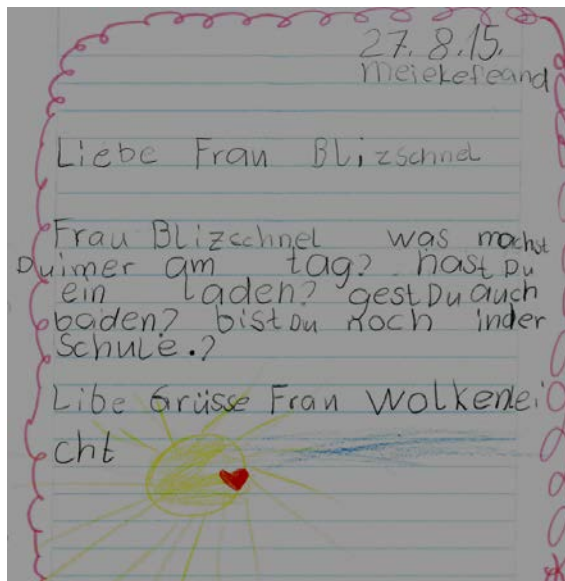 27. 8.15.
Meiekefeand
Liebe Frau Blizschnel
Frau Blizschnel was machst
Du imer am tag? hast Du
ein laden? gest Du auch
baden? bist Du noch in der
Schule.?
Libe Grüsse Frau Wolkenlei
cht